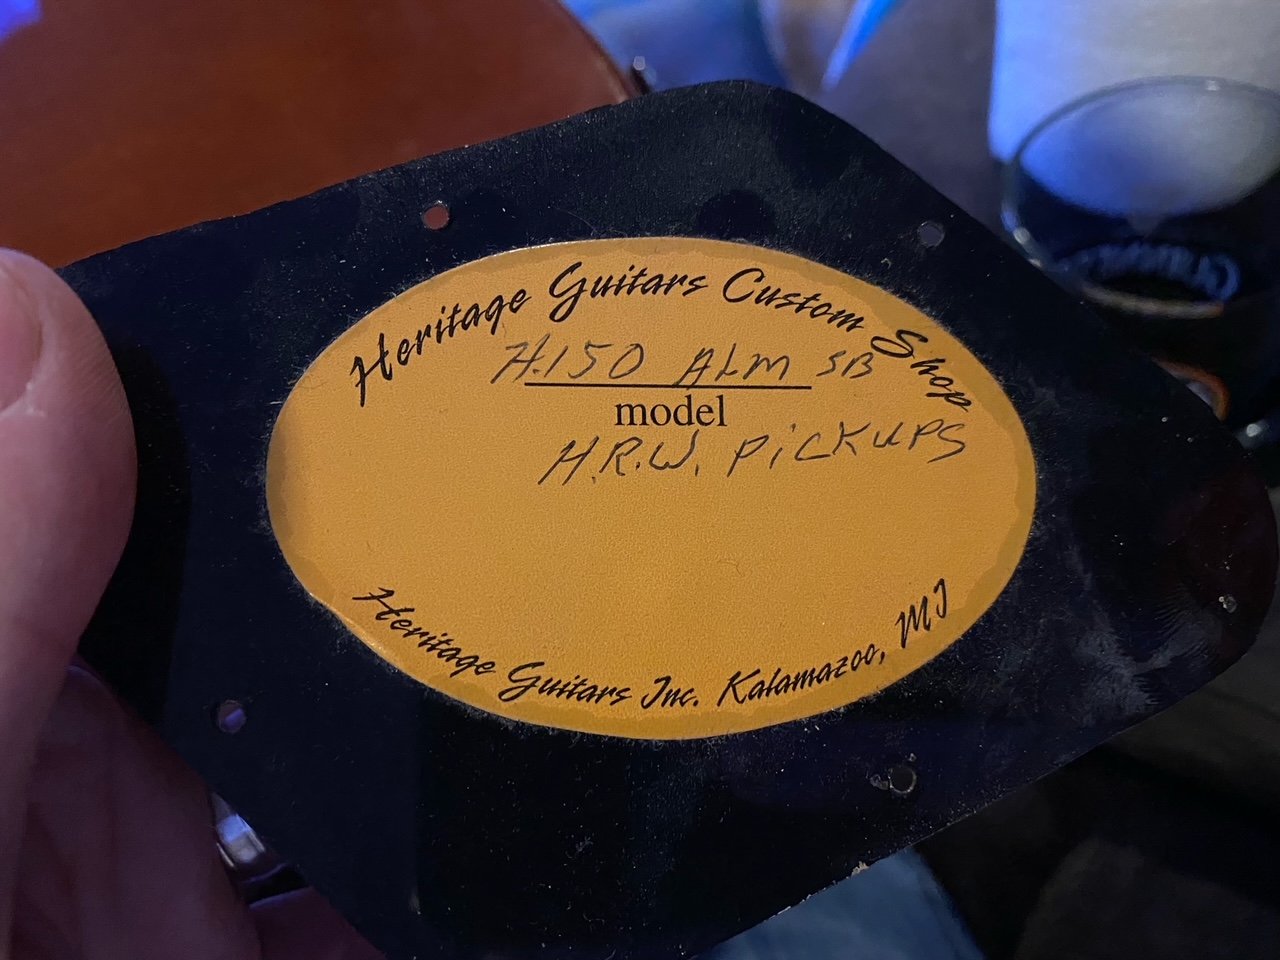 Heritage Guitars Custom Shop
H.150 ALM SB
model
H.R.W. PiCKUPS
Heritage Guitars Inc. Kalamazoo, MI